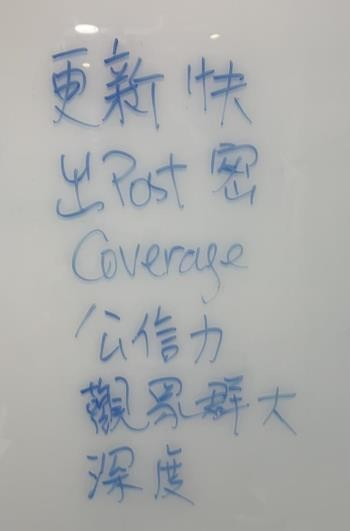 更新快
出Post密
Coverage
公信力
觀眾群大
深度